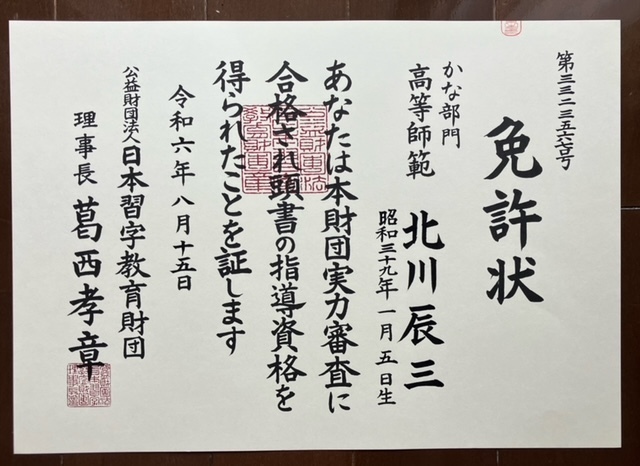 第三三二三五六七号
免許状
かな部門
高等師範
北川辰三
昭和三十九年一月五日生
あなたは本財団実力審査に
合格され頭書の指導資格を
得られたことを証します
令和六年八月十五日
公益財団法人日本習字教育財団
理事長 葛西孝章